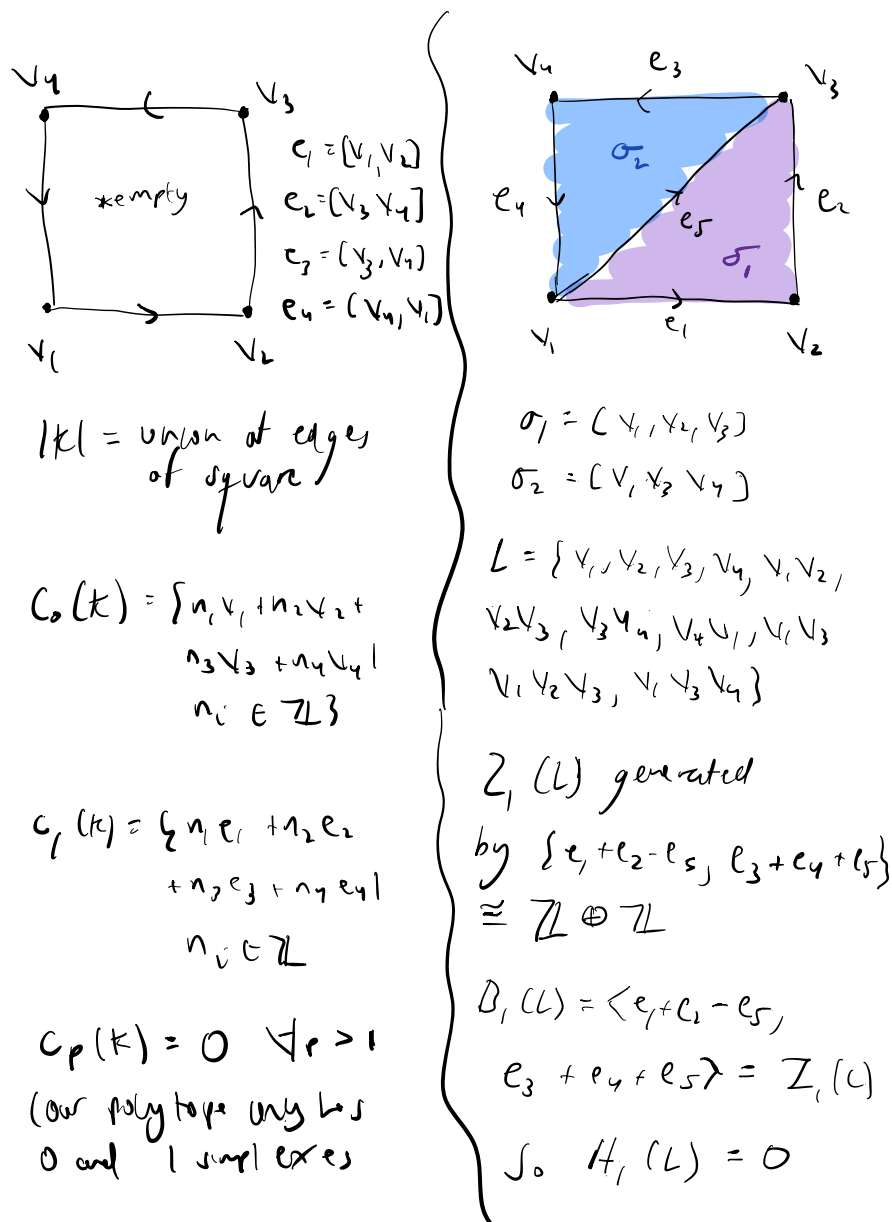 V4
V3
*empty
V1
V2
e1 = [V1, V2]
e2 = [V3 V4]
e3 = [V3, V4]
e4 = [V4, V1]
|K| = union of edges
of square
C0(K) = {n1V1 + n2V2 +
n3V3 + n4V4 |
ni ∈ ℤ}
C1(K) = {n1e1 + n2e2
+ n3e3 + n4e4 |
ni ∈ ℤ
Cp(K) = 0 ∀p > 1
(our polytope only has
0 and 1 simplexes
V4
e3
V3
σ2
e4
e5
e2
σ1
V1
e1
V2
σ1 = [V1, V2, V3]
σ2 = [V1 V3 V4]
L = {V1, V2, V3, V4, V1V2,
V2V3, V3V4, V4V1, V1V3
V1V2V3, V1V3V4}
Z1(L) generated
by {e1+e2-e5, e3+e4+e5}
≅ ℤ ⊕ ℤ
B1(L) = <e1+e2-e5,
e3 + e4 + e5> = Z1(L)
So H1(L) = 0